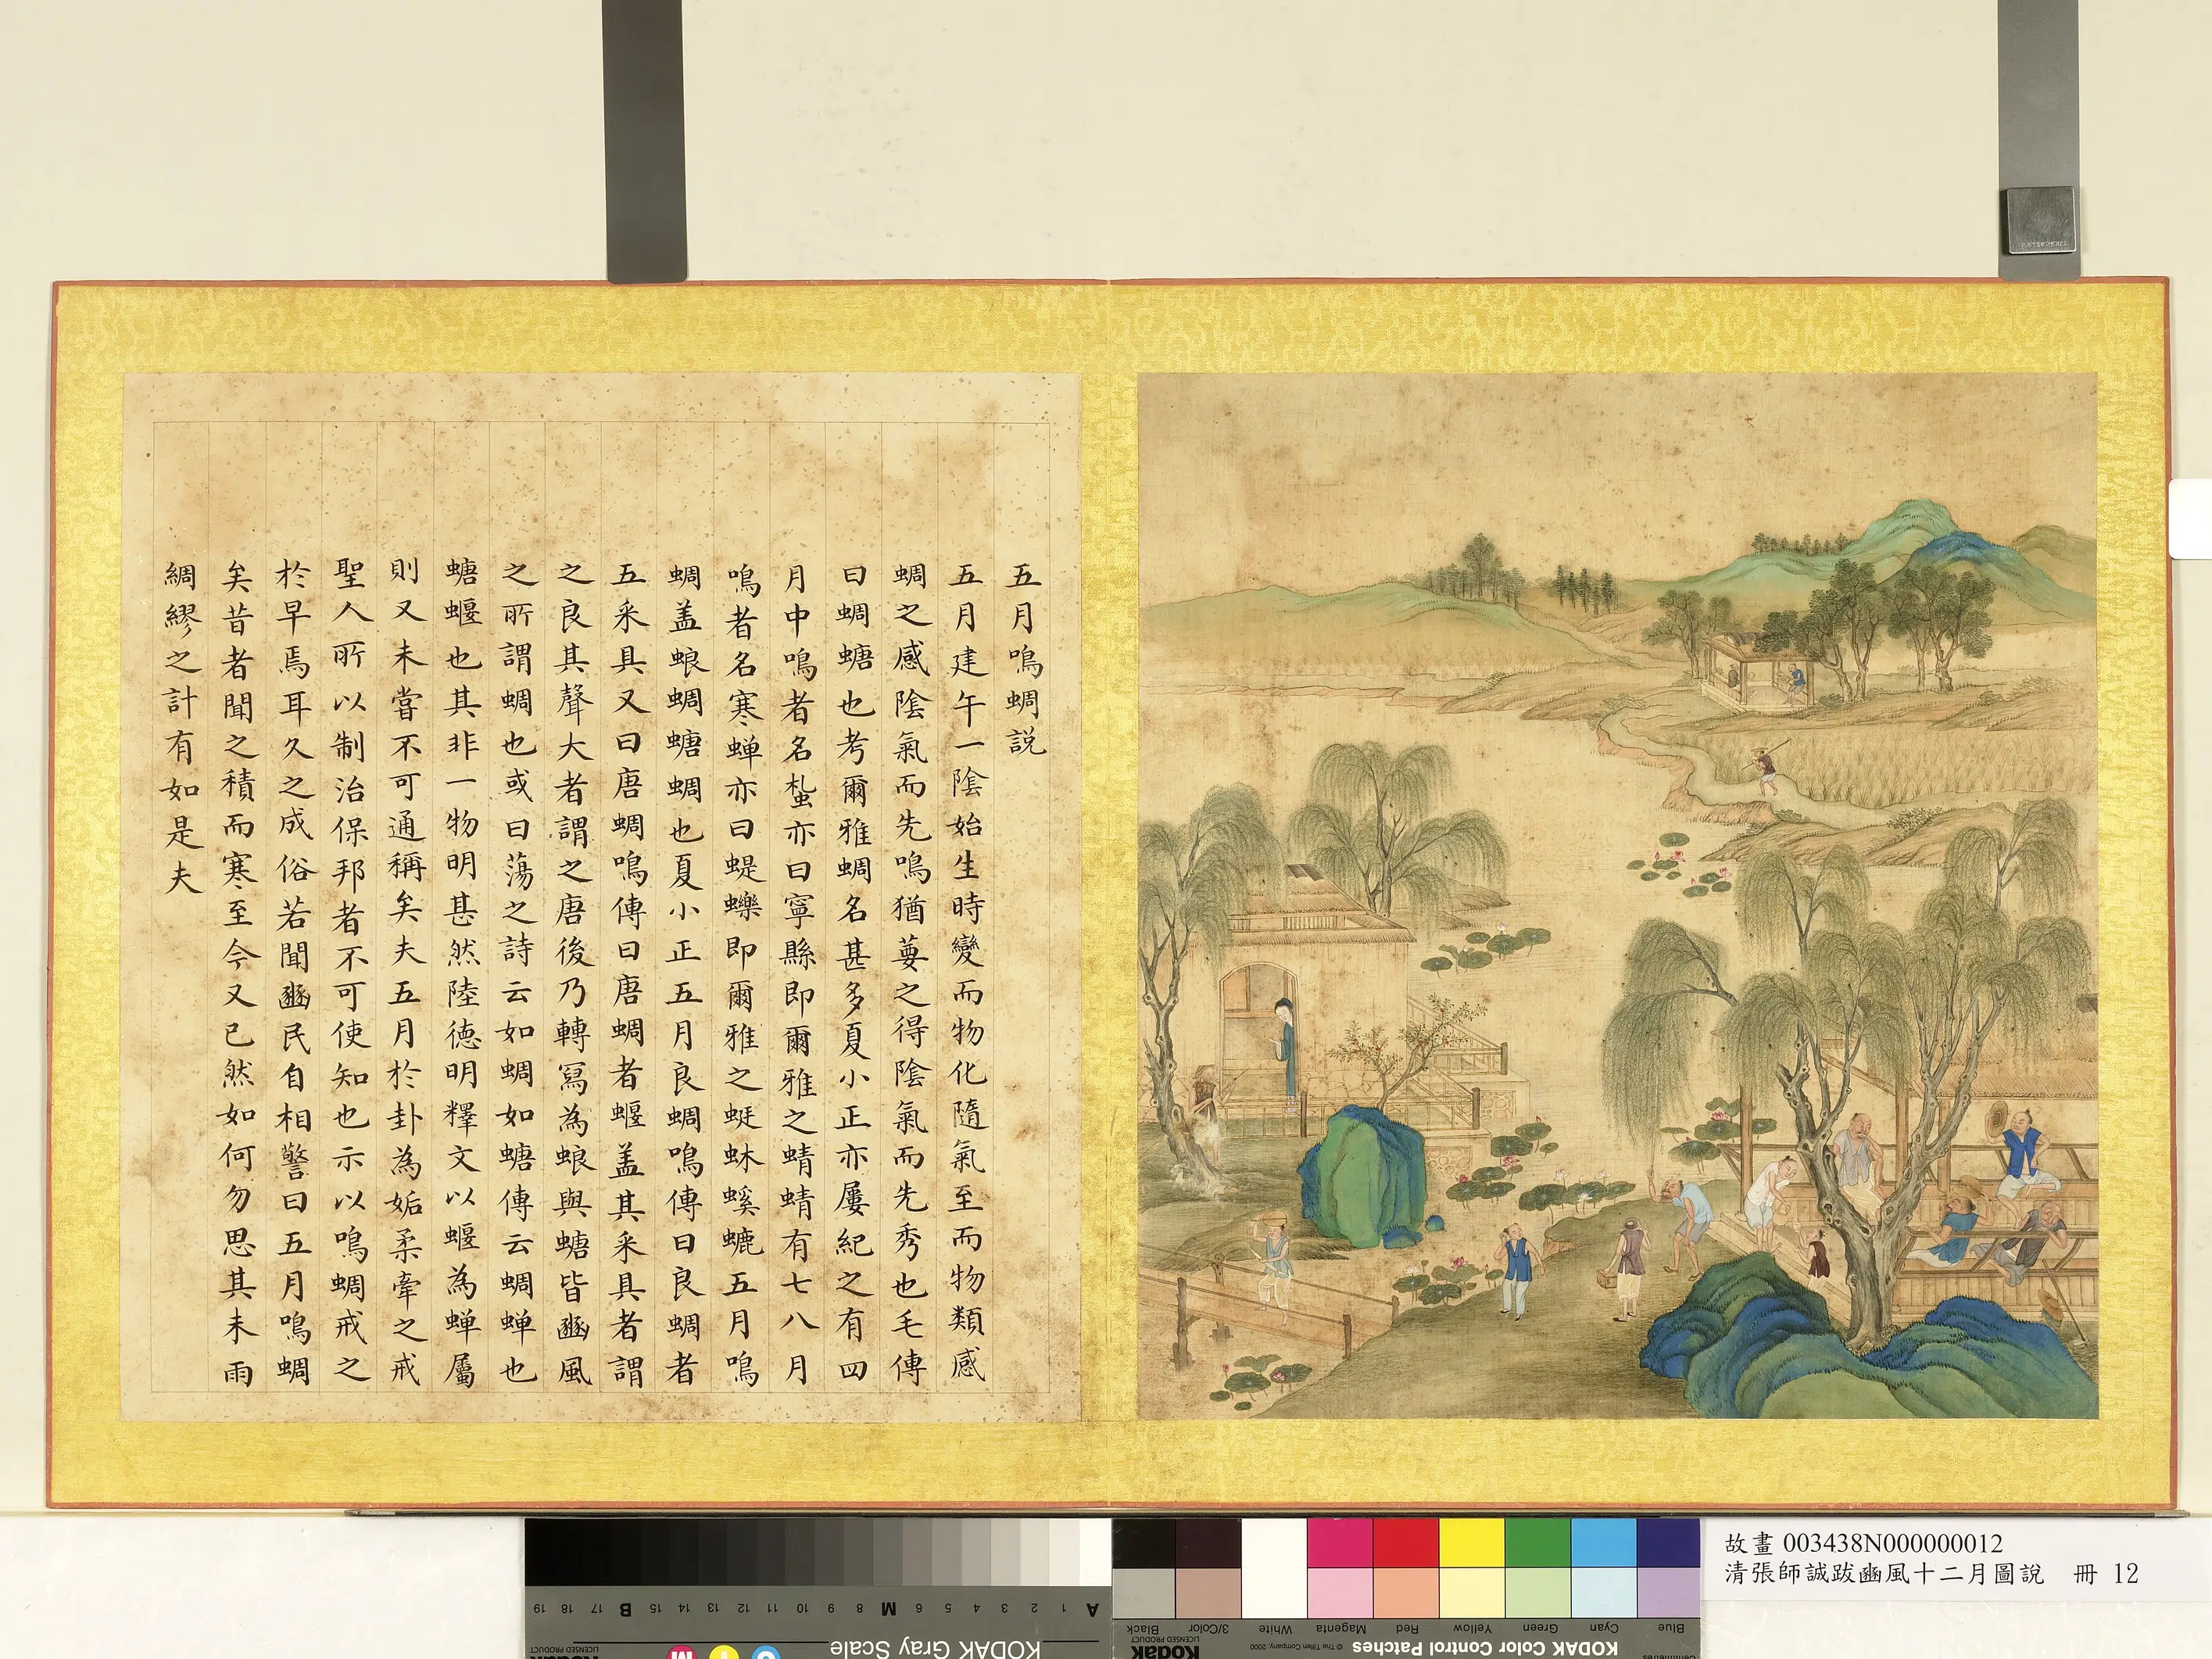 五月鳴蜩說
五月建午一陰始生時變而物化隨氣至而物類感
蜩之感陰氣而先鳴猶葽之得陰氣而先秀也毛傳
曰蜩螗也考爾雅蜩名甚多夏小正亦屢紀之有四
月中鳴者名蚻亦曰寧縣即爾雅之蜻蜻有七八月
鳴者名寒蟬亦曰蝭蠑即爾雅之蜓蚞螇螰五月鳴
蜩盖蜋蜩螗蜩也夏小正五月良蜩鳴傳曰良蜩者
五采具又曰唐蜩鳴傳曰唐蜩者蝘盖其采具者謂
之良其聲大者謂之唐後乃轉寫為蜋與螗皆豳風
之所謂蜩也或曰蕩之詩云如蜩如螗傳云蜩蟬也
螗蝘也其非一物明甚然陸德明釋文以蝘為蟬屬
則又未嘗不可通稱矣夫五月於卦為姤柔牽之戒
聖人所以制治保邦者不可使知也示以鳴蜩戒之
於早焉耳久之成俗若聞豳民自相警曰五月鳴蜩
矣昔者聞之積而寒至今又已然如何勿思其未雨
綢繆之計有如是夫
故畫 003438N000000012
清張師誠跋豳風十二月圖說 冊 12
A 1 2 3 4 5 6 M 8 9 10 11 12 13 14 15 B 17 18 19
KODAK Gray Scale
LICENSED PRODUCT
Kodak
C Y M
Blue Cyan Green Yellow Red Magenta White 3/Color Black
KODAK Color Control Patches
© The Tiffen Company, 2000
Kodak
LICENSED PRODUCT
Centimetres